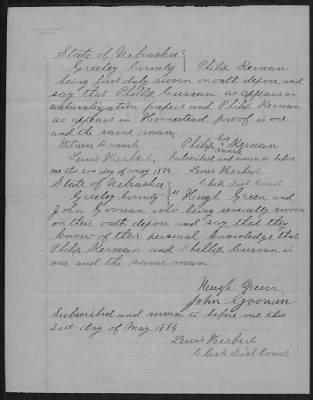 State of Nebraska }
Greeley County } Philip Kernan
being first duly sworn on oath depose and
say that Philip Curran as appears in
naturalization papers and Philip Kernan
as appears in Homestead proof is one
and the same man.
Witness to mark Philip his mark Kernan
Lewis Herbert. Subscribed and sworn to before
me this 20th day of May 1884. Lewis Herbert
State of Nebraska } Clerk Dist Court
Greeley County } ss Hugh Green and
John Goonan who being severally sworn
on their oath depose and say that they
know of their personal knowledge that
Philip Kernan and Phillip Curran is
one and the same man
Hugh Green
John Goonan
Subscribed and sworn to before me this
20th day of May 1884
Lewis Herbert
Clerk Dist Court